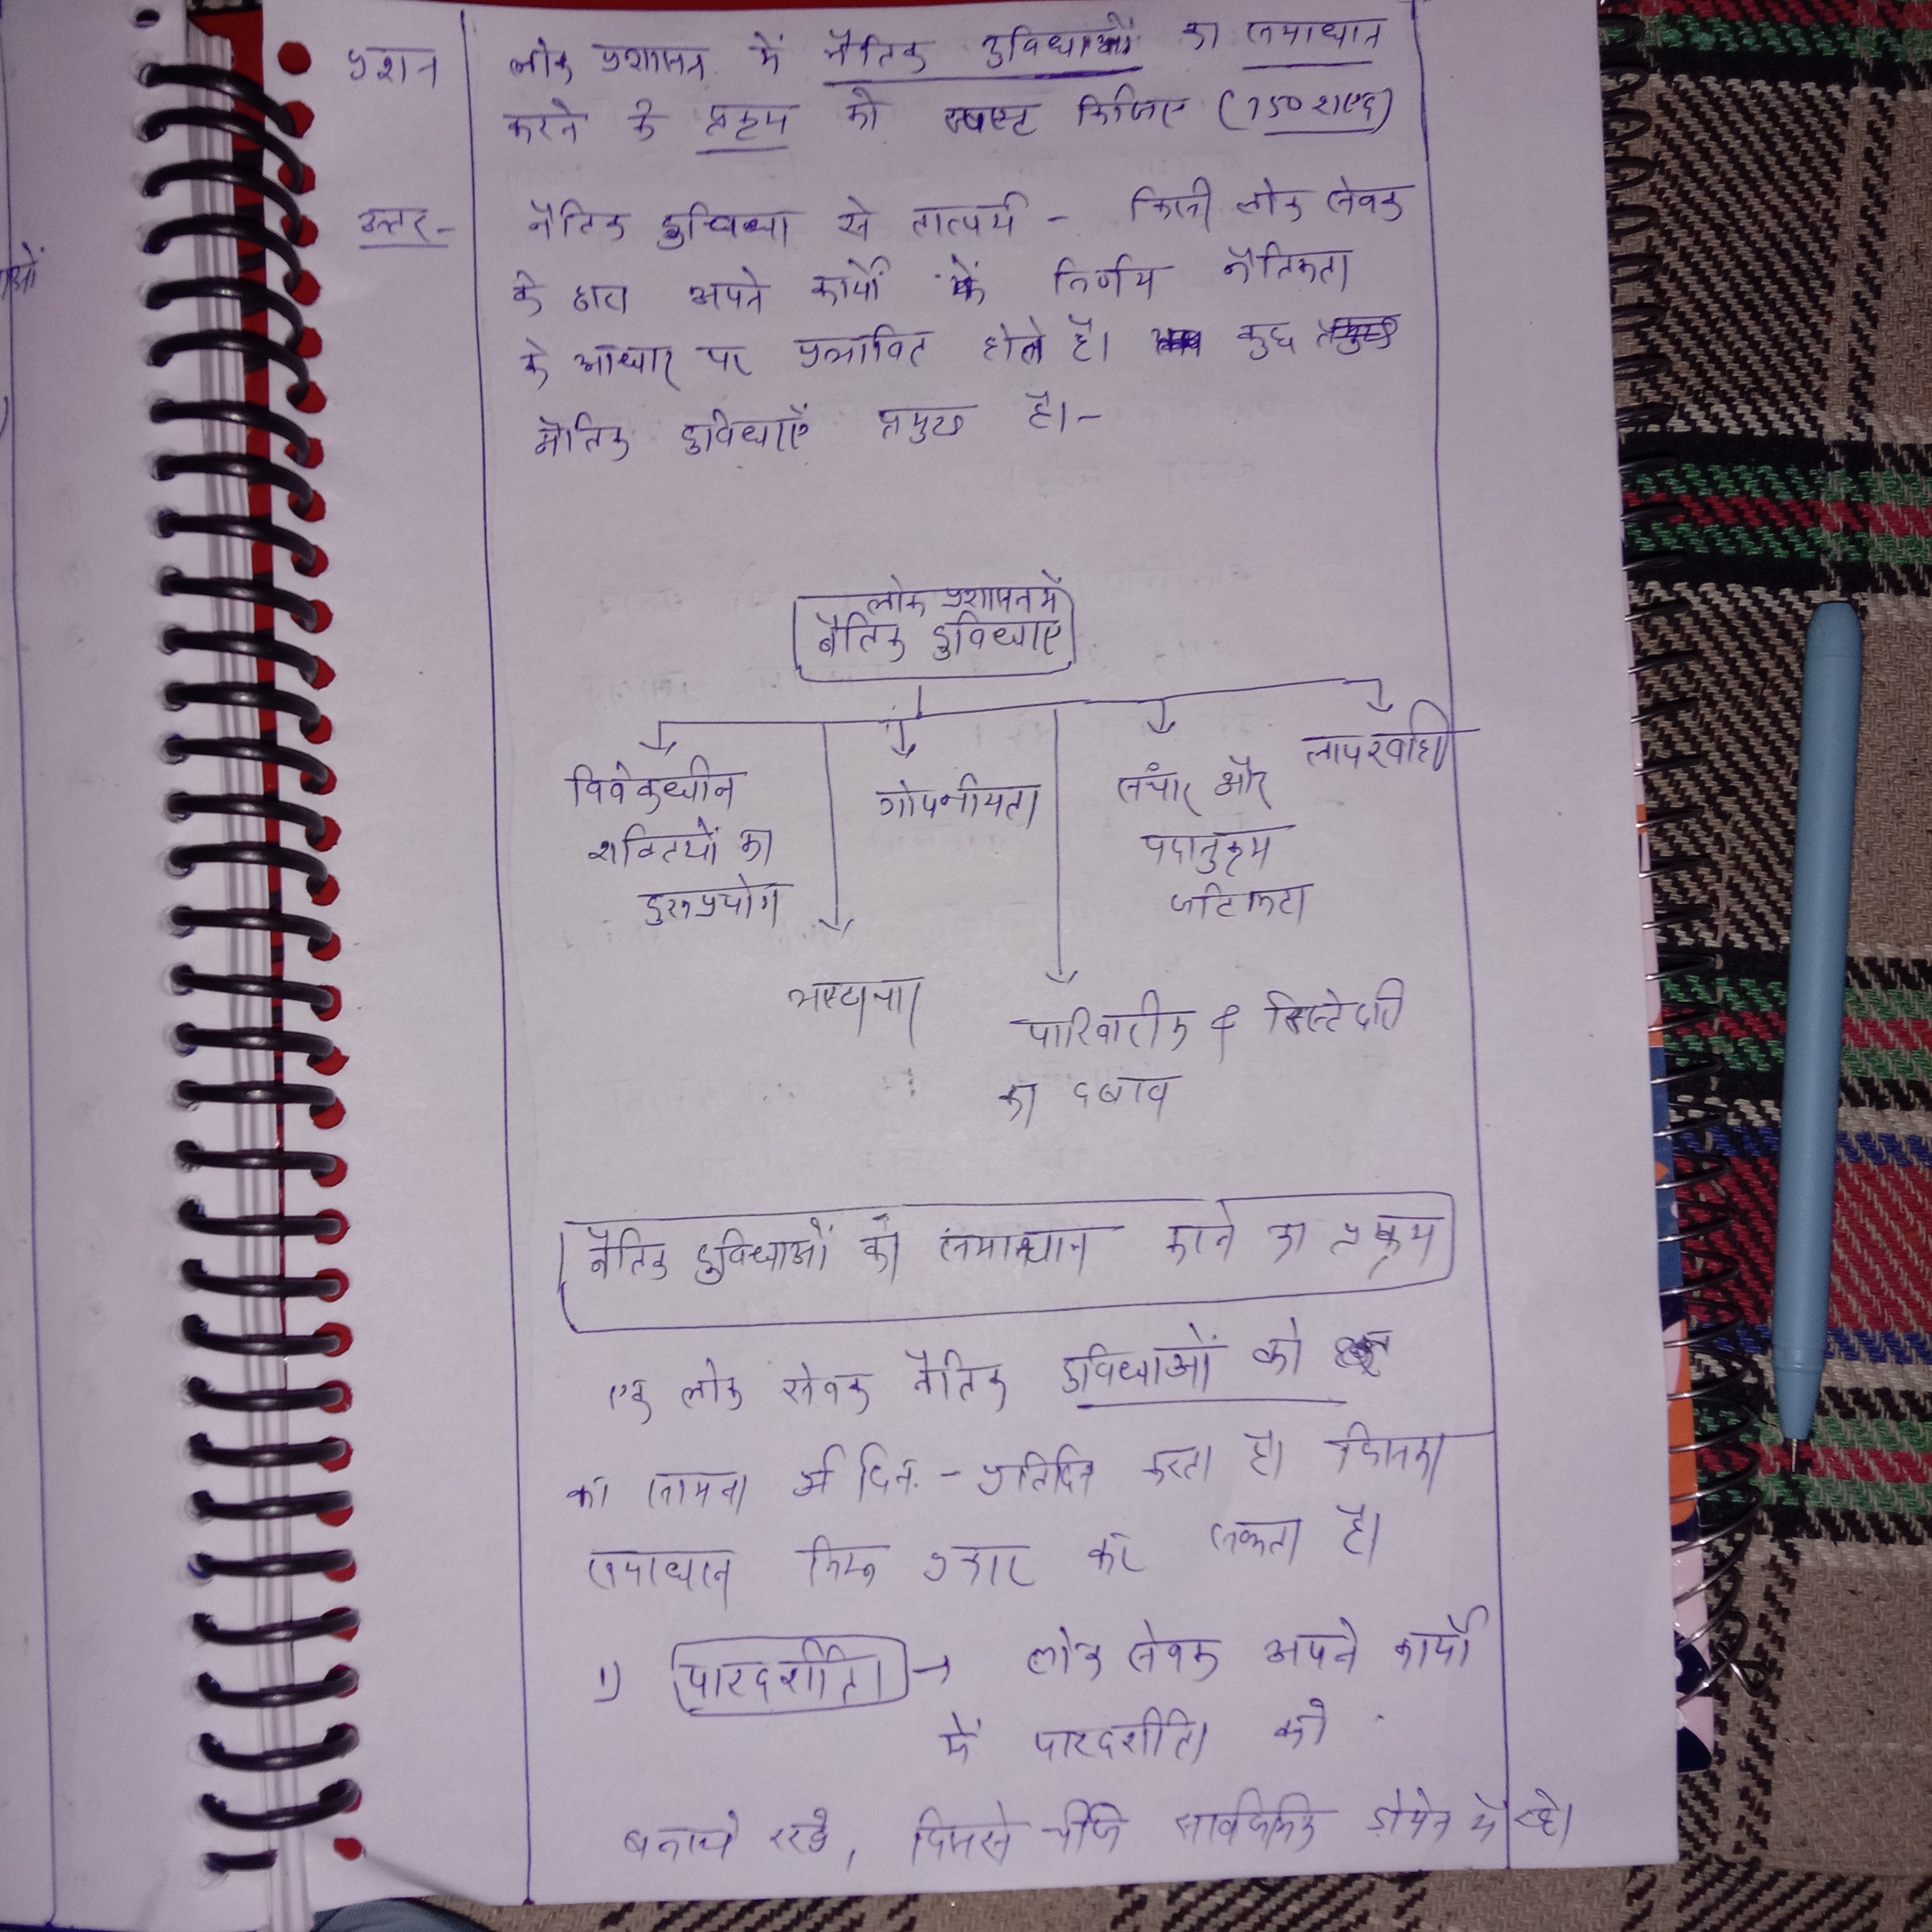 प्रशन लोक प्रशासन में नैतिक दुविधाओं का समाधान
करने के प्रक्रम को स्पष्ट किजिए (150 शब्द)
उत्तर- नैतिक दुविधा से तात्पर्य - किसी लोक सेवक
के द्वारा अपने कार्यो के निर्णय नैतिकता
के आधार पर प्रभावित होते है। कुछ
नैतिक दुविधाएँ प्रमुख है।-
लोक प्रशासन में
नैतिक दुविधाए
विवेकधीन
शक्तियों का
दुरुप्रयोग
गोपनीयता
संचार और
पदानुक्रम
जटिलता
लापरवाही
भ्रष्टाचार
पारिवारीक & रिश्तेदारी
का दबाव
नैतिक दुविधाओं को समाधान करने का प्रक्रम
एक लोक सेवक नैतिक दुविधाओं को
का सामना दिन-प्रतिदिन करता है। जिसका
समाधान निम्न प्रकार कर सकता है।
1) पारदर्शीता → लोक सेवक अपने कार्यो
में पारदर्शीता को
बनाये रखे, जिससे चीजे सार्वजनिक डोमेन में रहे।
ओं